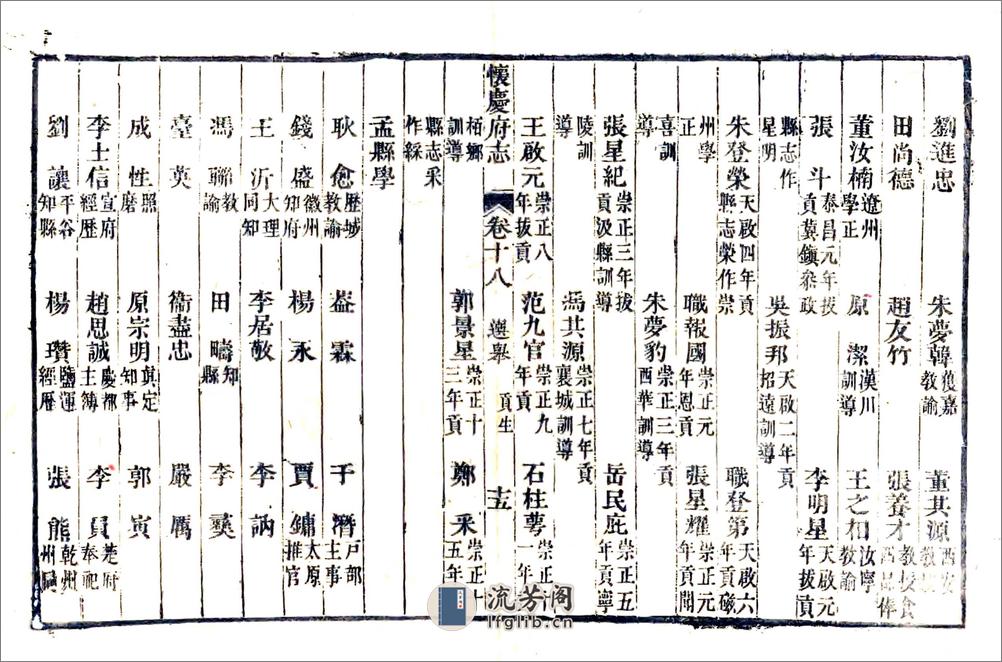 劉進忠 朱夢韓獲嘉教諭 董其源西安
田尚德 趙友竹 張養才
董汝楠遼州學正 原潔漢川訓導 王之相汝寧教諭
張斗泰昌元年拔貢冀鎮叅政 李明星天啟元年拔貢
縣志作星明 吳振邦天啟二年貢招遠訓導
朱登榮天啟四年貢縣志榮作崇 職登第天啟六年貢
州學正 職報國崇正元年恩貢 張星耀崇正元年貢
喜訓導 朱夢豹崇正三年貢西華訓導
張星紀崇正三年拔貢汲縣訓導 岳民庇崇正五年貢寧
陵訓導 馮其源崇正七年貢襄城訓導
王啟元崇正八年拔貢 范九官崇正九年貢 石柱蕚崇正十一年
懷慶府志 卷十八 選舉 貢生 十五
栢鄉訓導 郭景星崇正十三年貢 鄭采崇正十五年
縣志采作綵
孟縣學
耿愈歷城教諭 秦霖 于潛戶部主事
錢盛徽州知府 楊永 賈鏞太原推官
王沂大理同知 李居敬 李訥
馮聯教諭 田疇知縣 李爽
臺英 衛盡忠 嚴厲
成性照磨 原宗明真定知事 郭寅
李士信宣府經歷 趙思誠慶都主簿 李員楚府奉祀
劉讓平谷知縣 楊瓚鹽運經歷 張熊乾州
流芳阁
lfglib.cn